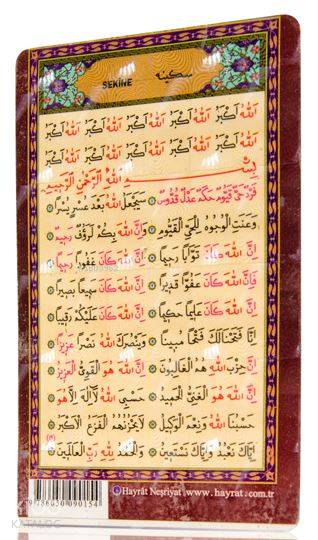 SEKİNE سكينه
اَللّٰهُ اَكْبَرُ اَللّٰهُ اَكْبَرُ اَللّٰهُ اَكْبَرُ اَللّٰهُ اَكْبَرُ اَللّٰهُ اَكْبَرُ
اَللّٰهُ اَكْبَرُ اَللّٰهُ اَكْبَرُ اَللّٰهُ اَكْبَرُ اَللّٰهُ اَكْبَرُ اَللّٰهُ اَكْبَرُ
بِسْمِ اللّٰهِ الرَّحْمٰنِ الرَّحِيمِ
فَرْدٌ حَىٌّ قَيُّومٌ حَكَمٌ عَدْلٌ قُدُّوسٌ سَيَجْعَلُ اللّٰهُ بَعْدَ عُسْرٍ يُسْرًا
وَعَنَتِ الْوُجُوهُ لِلْحَىِّ الْقَيُّومِ وَاِنَّ اللّٰهَ بِكُمْ لَرَؤُفٌ رَحِيمٌ
اِنَّ اللّٰهَ كَانَ تَوَّابًا رَحِيمًا اِنَّ اللّٰهَ كَانَ غَفُورًا رَحِيمًا
فَاِنَّ اللّٰهَ كَانَ عَفُوًّا قَدِيرًا اِنَّ اللّٰهَ كَانَ سَمِيعًا بَصِيرًا
اِنَّ اللّٰهَ كَانَ عَلِيمًا حَكِيمًا اِنَّ اللّٰهَ كَانَ عَلَيْكُمْ رَقِيبًا
اِنَّا فَتَحْنَا لَكَ فَتْحًا مُبِينًا وَيَنْصُرَكَ اللّٰهُ نَصْرًا عَزِيزًا
اِنَّ حِزْبَ اللّٰهِ هُمُ الْغَالِبُونَ اِنَّ اللّٰهَ هُوَ الْقَوِىُّ الْعَزِيزُ
اِنَّ اللّٰهَ هُوَ الْغَنِىُّ الْحَمِيدُ حَسْبِىَ اللّٰهُ لَٓا اِلٰهَ اِلَّا هُوَ
حَسْبُنَا اللّٰهُ وَنِعْمَ الْوَكِيلُ لَا يَحْزُنُهُمُ الْفَزَعُ الْاَكْبَرُ
اِيَّاكَ نَعْبُدُ وَاِيَّاكَ نَسْتَعِينُ وَالْحَمْدُ لِلّٰهِ رَبِّ الْعَالَمِينَ
9786050090154
Hayrât Neşriyat www.hayrat.com.tr